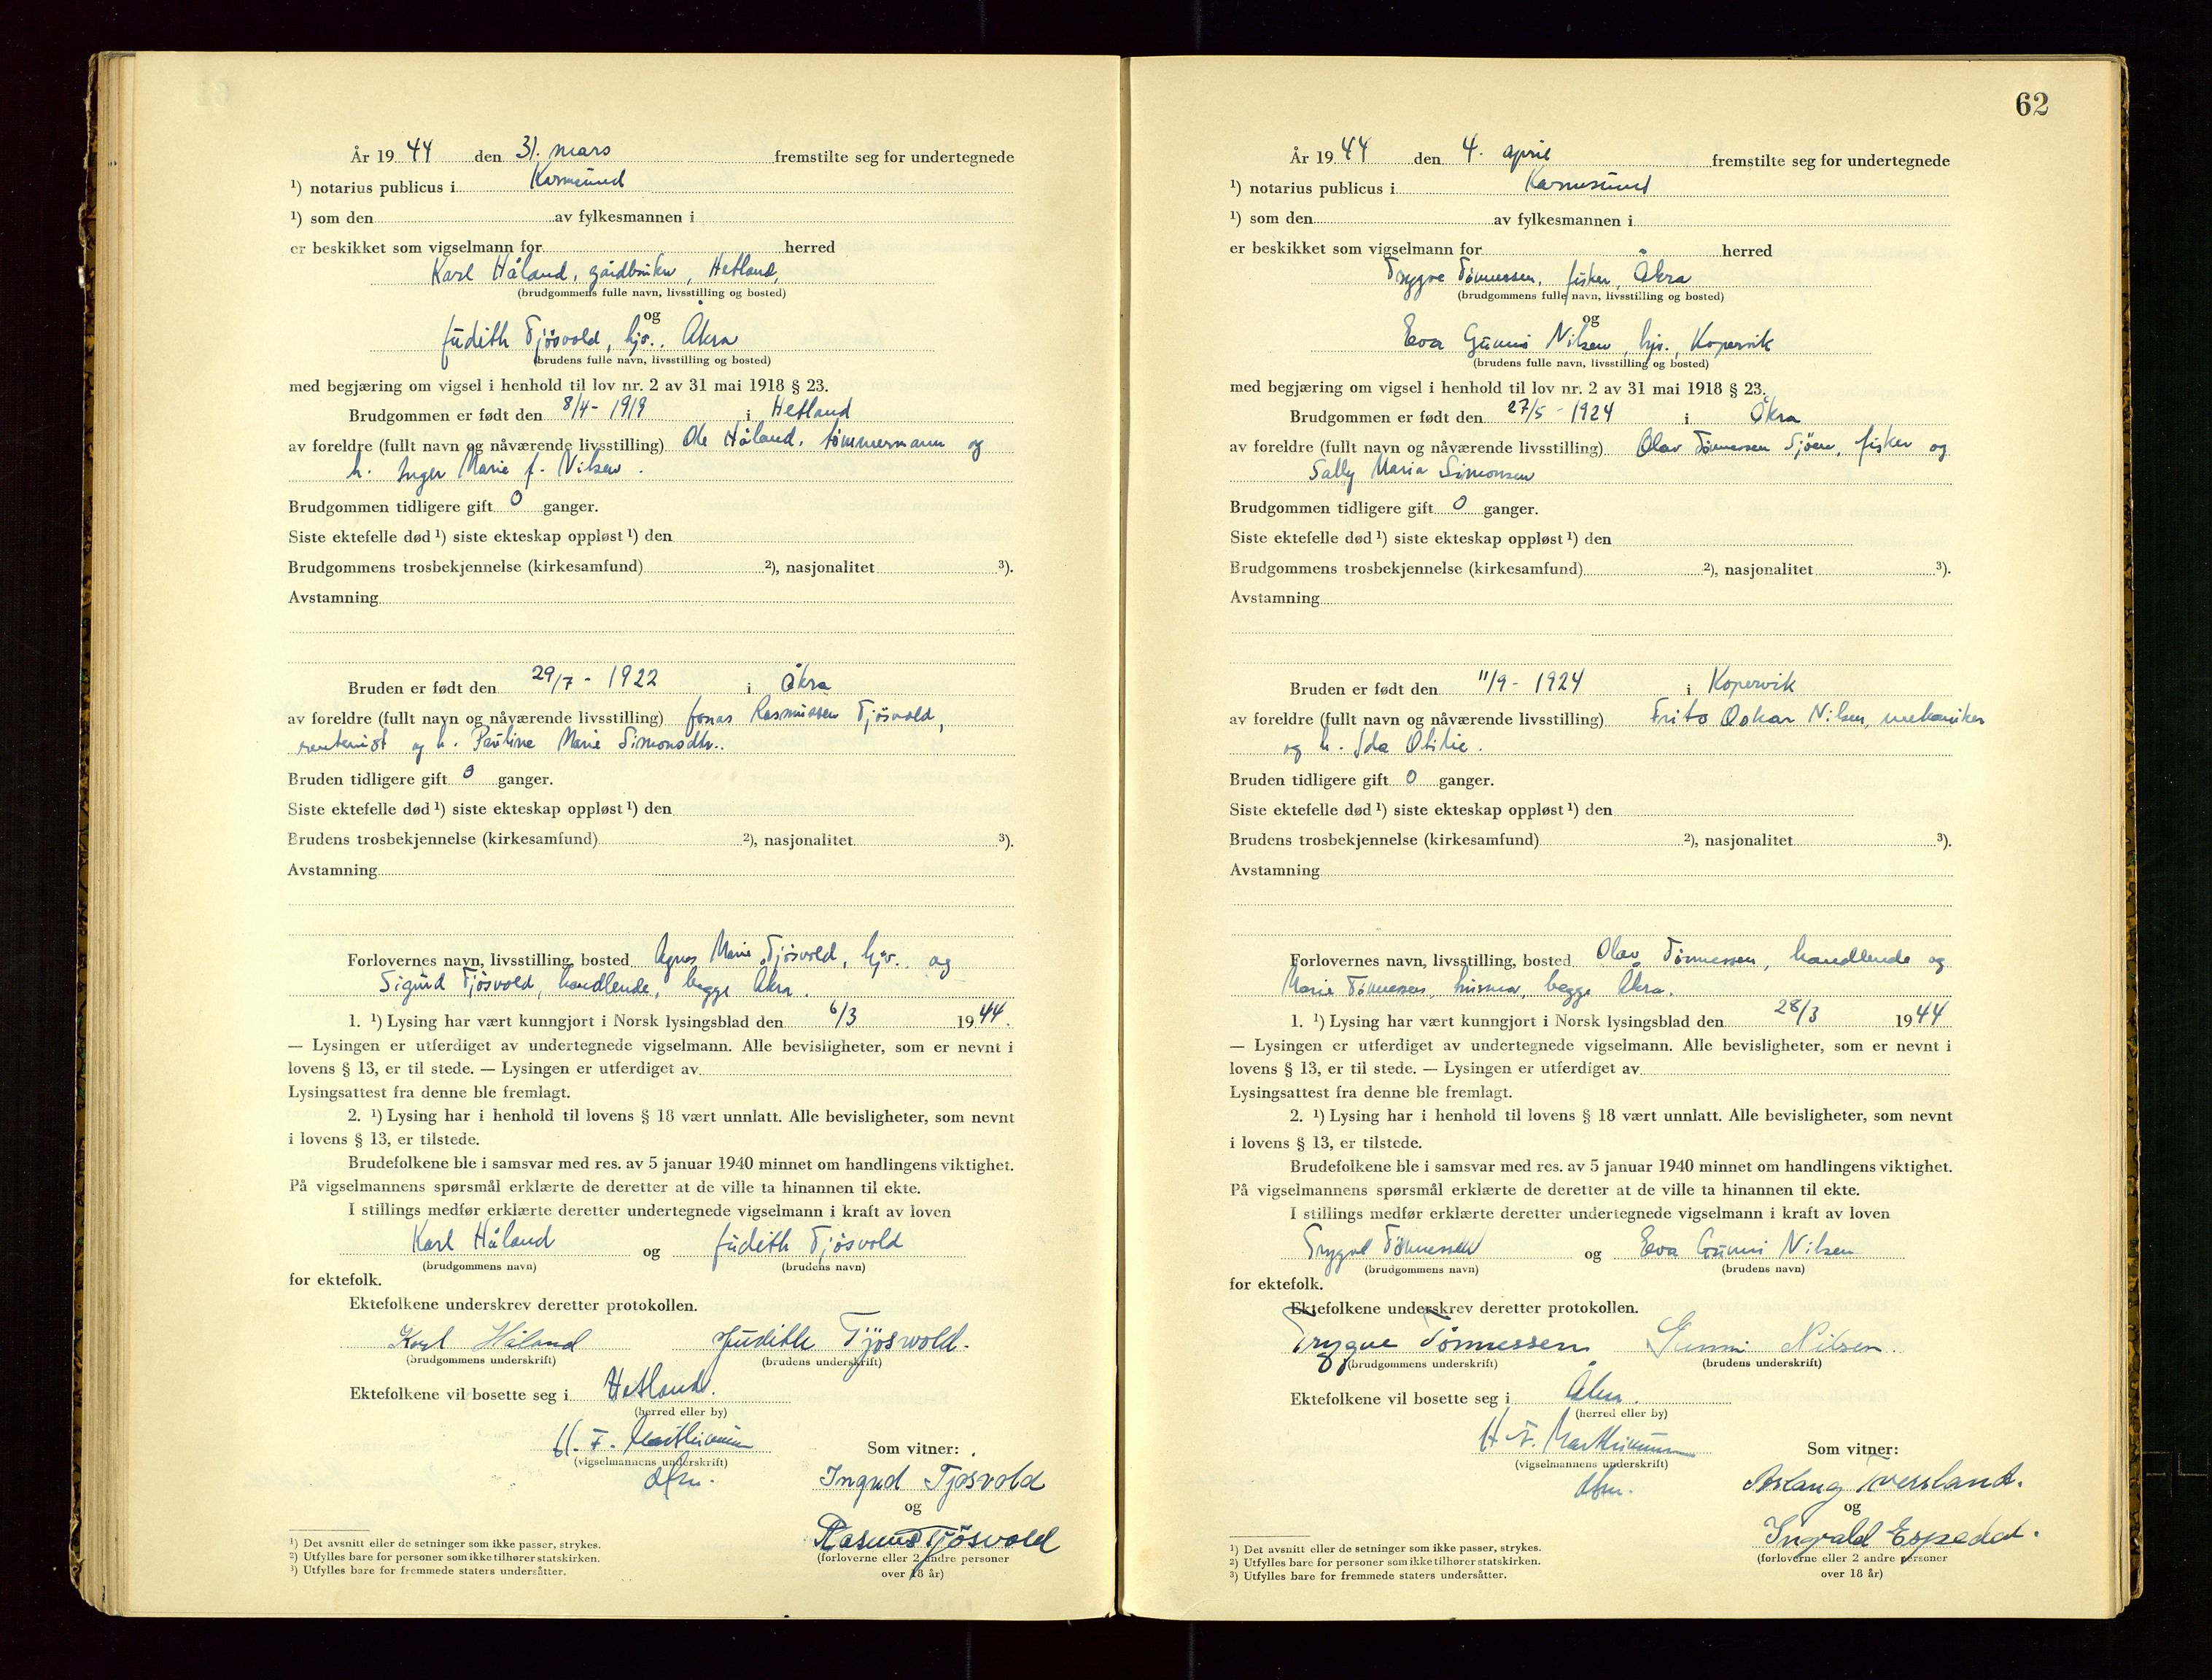 År 19 44 den 31. mars fremstilte seg for undertegnede
¹) notarius publicus i Karmsund
¹) som den av fylkesmannen i
er beskikket som vigselmann for herred
Karl Håland, gårdbruker, Hetland,
(brudgommens fulle navn, livsstilling og bosted)
og
Judith Tjösvold, hjv., Åkra
(brudens fulle navn, livsstilling og bosted)
med begjæring om vigsel i henhold til lov nr. 2 av 31 mai 1918 § 23.
Brudgommen er født den 8/4 - 1919 i Hetland
av foreldre (fullt navn og nåværende livsstilling) Ole Håland, tömmermann og
h. Inger Marie f. Nilsen.
Brudgommen tidligere gift 0 ganger.
Siste ektefelle død ¹) siste ekteskap oppløst ¹) den
Brudgommens trosbekjennelse (kirkesamfund) ²), nasjonalitet ³).
Avstamning
Bruden er født den 29/7 - 1922 i Åkra
av foreldre (fullt navn og nåværende livsstilling) Jonas Rasmussen Tjösvold,
rentenist og h. Pauline Marie Simonsdtr.
Bruden tidligere gift 0 ganger.
Siste ektefelle død ¹) siste ekteskap oppløst ¹) den
Brudens trosbekjennelse (kirkesamfund) ²), nasjonalitet ³).
Avstamning
Forlovernes navn, livsstilling, bosted Agnes Marie Tjösvold, hjv. og
Sigurd Tjösvold, handlende, begge Åkra.
1. ¹) Lysing har vært kunngjort i Norsk lysingsblad den 6/3 19 44.
— Lysingen er utferdiget av undertegnede vigselmann. Alle bevisligheter, som er nevnt i
lovens § 13, er til stede. — Lysingen er utferdiget av
Lysingsattest fra denne ble fremlagt.
2. ¹) Lysing har i henhold til lovens § 18 vært unnlatt. Alle bevisligheter, som nevnt
i lovens § 13, er tilstede.
Brudefolkene ble i samsvar med res. av 5 januar 1940 minnet om handlingens viktighet.
På vigselmannens spørsmål erklærte de deretter at de ville ta hinannen til ekte.
I stillings medfør erklærte deretter undertegnede vigselmann i kraft av loven
Karl Håland og Judith Tjösvold
(brudgommens navn) (brudens navn)
for ektefolk.
Ektefolkene underskrev deretter protokollen.
Karl Håland Judith Tjøsvold.
(brudgommens underskrift) (brudens underskrift)
Ektefolkene vil bosette seg i Hetland.
(herred eller by)
H. F.
(vigselmannens underskrift)
Som vitner:
Ingrid Tjøsvold
og
Rasmus Tjösvold
(forloverne eller 2 andre personer
over 18 år)
¹) Det avsnitt eller de setninger som ikke passer, strykes.
²) Utfylles bare for personer som ikke tilhører statskirken.
³) Utfylles bare for fremmede staters undersåtter.
62
År 19 44 den 4. april fremstilte seg for undertegnede
¹) notarius publicus i Karmsund
¹) som den av fylkesmannen i
er beskikket som vigselmann for herred
Trygve Tönnessen, fisker, Åkra
(brudgommens fulle navn, livsstilling og bosted)
og
Eva Gunni Nilsen, hjv., Kopervik
(brudens fulle navn, livsstilling og bosted)
med begjæring om vigsel i henhold til lov nr. 2 av 31 mai 1918 § 23.
Brudgommen er født den 27/5 - 1924 i Åkra
av foreldre (fullt navn og nåværende livsstilling) Olav Tönnessen Sjöen, fisker og
Sally Maria Simonsen
Brudgommen tidligere gift 0 ganger.
Siste ektefelle død ¹) siste ekteskap oppløst ¹) den
Brudgommens trosbekjennelse (kirkesamfund) ²), nasjonalitet ³).
Avstamning
Bruden er født den 11/9 - 1924 i Kopervik
av foreldre (fullt navn og nåværende livsstilling) Frits Oskar Nilsen, mekaniker
og h. Ida Otilie.
Bruden tidligere gift 0 ganger.
Siste ektefelle død ¹) siste ekteskap oppløst ¹) den
Brudens trosbekjennelse (kirkesamfund) ²), nasjonalitet ³).
Avstamning
Forlovernes navn, livsstilling, bosted Olav Tönnessen, handlende og
Marie Tönnessen, husmor, begge Åkra.
1. ¹) Lysing har vært kunngjort i Norsk lysingsblad den 28/3 19 44
— Lysingen er utferdiget av undertegnede vigselmann. Alle bevisligheter, som er nevnt i
lovens § 13, er til stede. — Lysingen er utferdiget av
Lysingsattest fra denne ble fremlagt.
2. ¹) Lysing har i henhold til lovens § 18 vært unnlatt. Alle bevisligheter, som nevnt
i lovens § 13, er tilstede.
Brudefolkene ble i samsvar med res. av 5 januar 1940 minnet om handlingens viktighet.
På vigselmannens spørsmål erklærte de deretter at de ville ta hinannen til ekte.
I stillings medfør erklærte deretter undertegnede vigselmann i kraft av loven
Trygve Tönnessen og Eva Gunni Nilsen
(brudgommens navn) (brudens navn)
for ektefolk.
Ektefolkene underskrev deretter protokollen.
Trygve Tönnessen Gunni Nilsen.
(brudgommens underskrift) (brudens underskrift)
Ektefolkene vil bosette seg i Åkra.
(herred eller by)
H. F.
(vigselmannens underskrift)
Som vitner:
Aslaug Tversland.
og
Ingvald Espedal.
(forloverne eller 2 andre personer
over 18 år)
¹) Det avsnitt eller de setninger som ikke passer, strykes.
²) Utfylles bare for personer som ikke tilhører statskirken.
³) Utfylles bare for fremmede staters undersåtter.